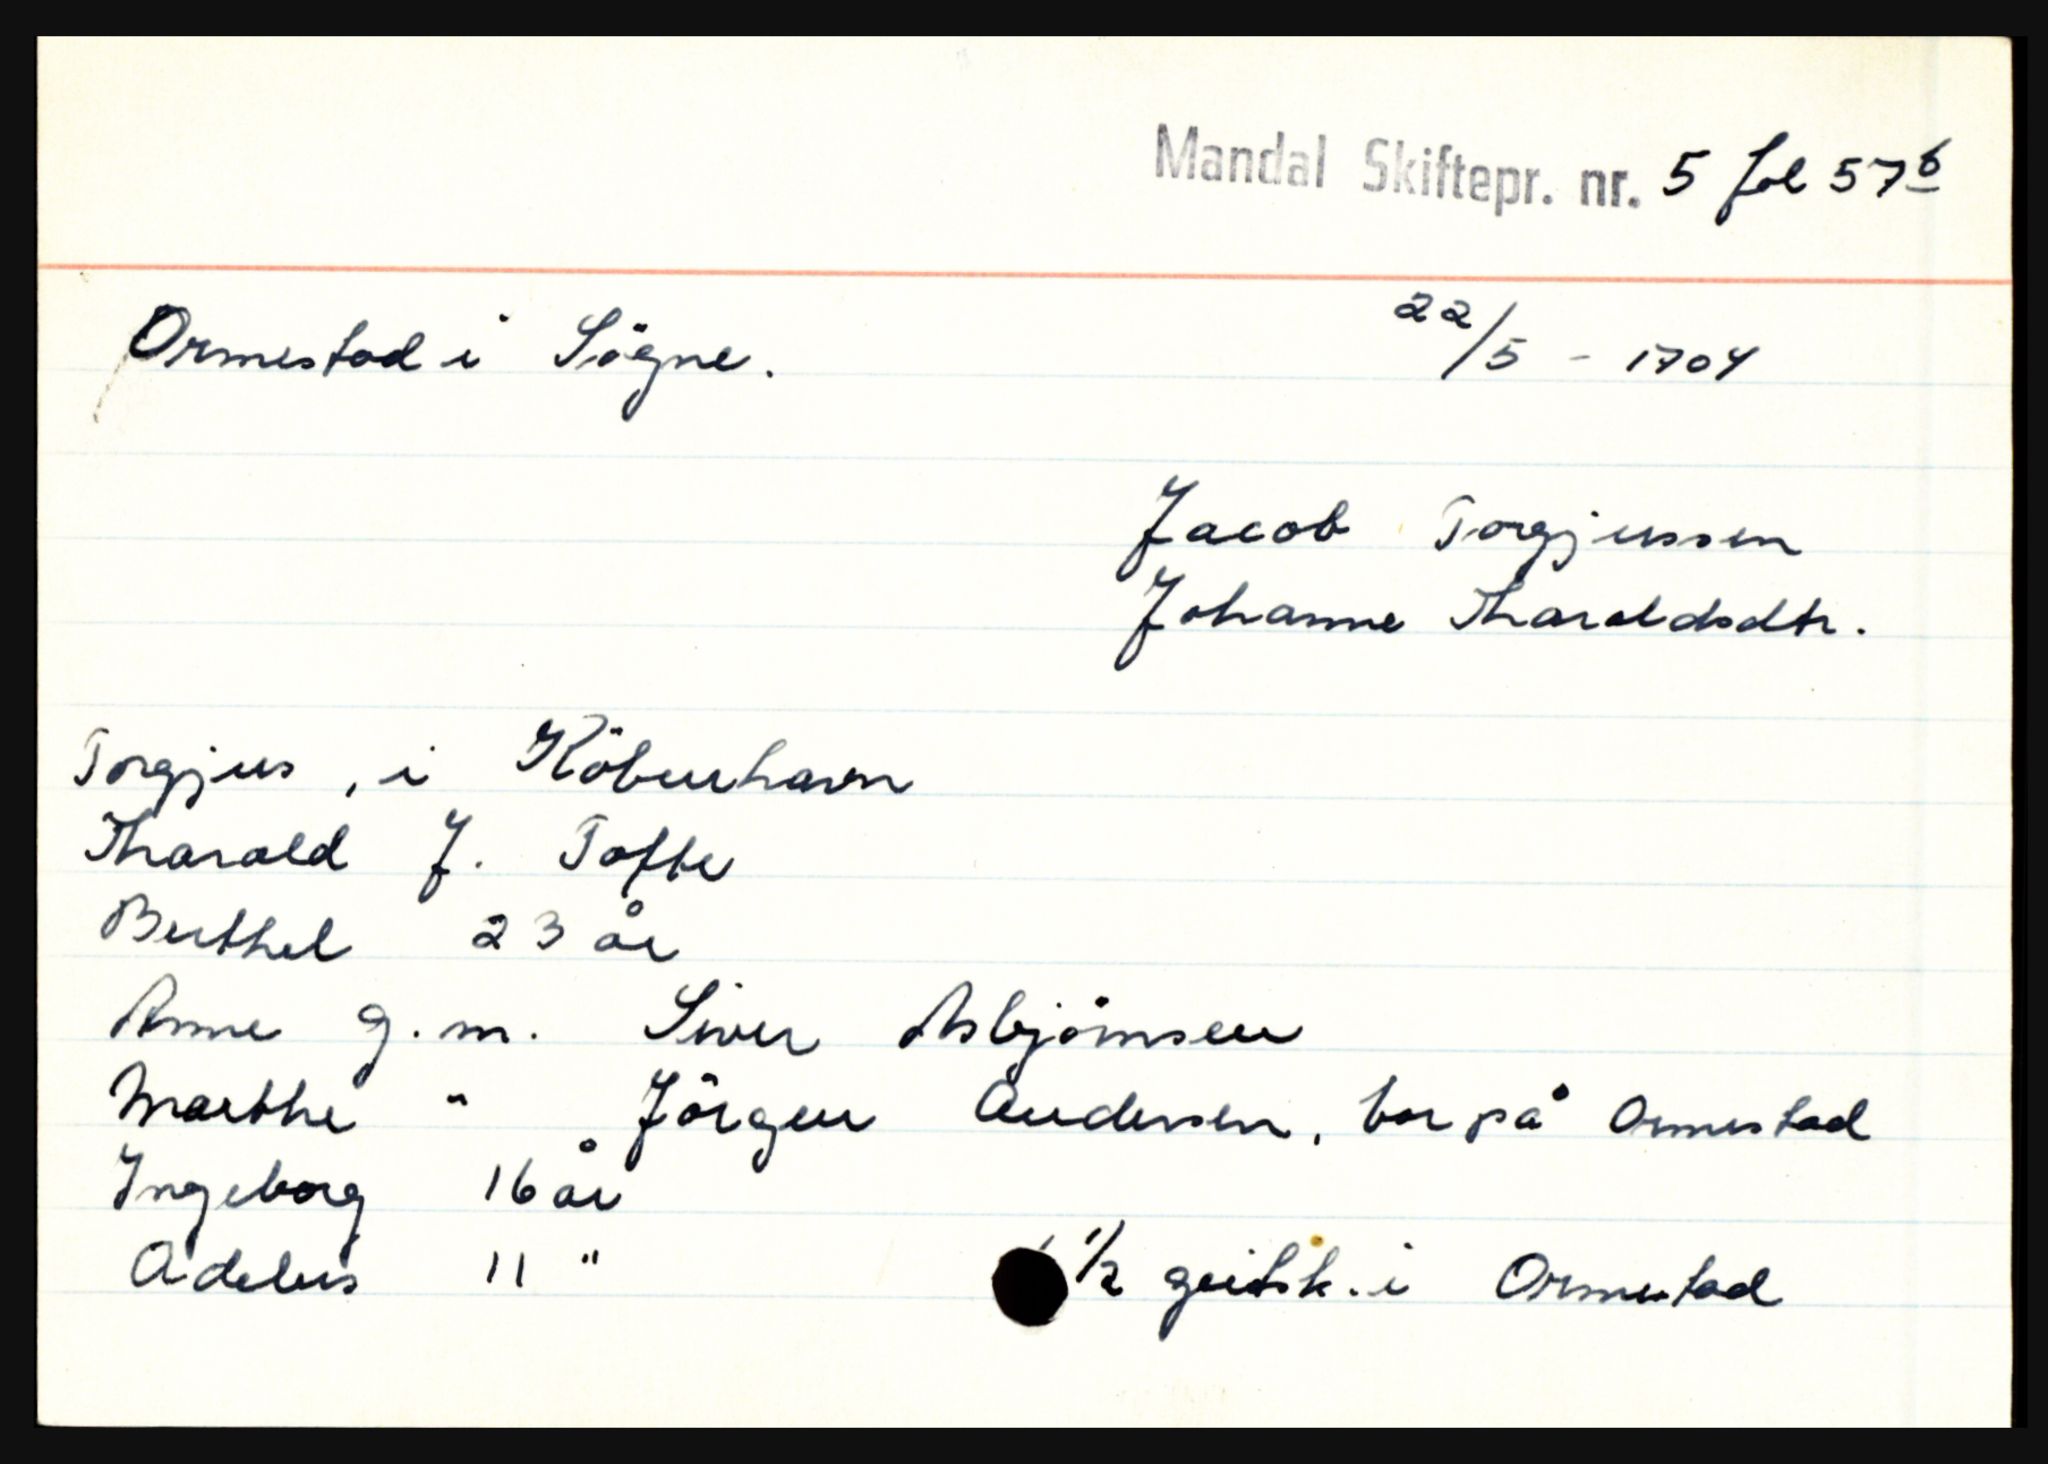 Mandal Skiftepr. nr. 5 fol 57b
Ormestad i Sögne. 22/5 - 1704
Jacob Torgjussen
Johanne Tharaldsdtr.
Torgjus, i Köbenhavn
Tharald J. Tofte
Berthel 23 år
Anne g.m. Siver Asbjörnsen
Marthe " Jörgen Andersen, bor på Ormestad
Ingeborg 16 år
Adelus 11 " 1/2 geitsk. i Ormestad